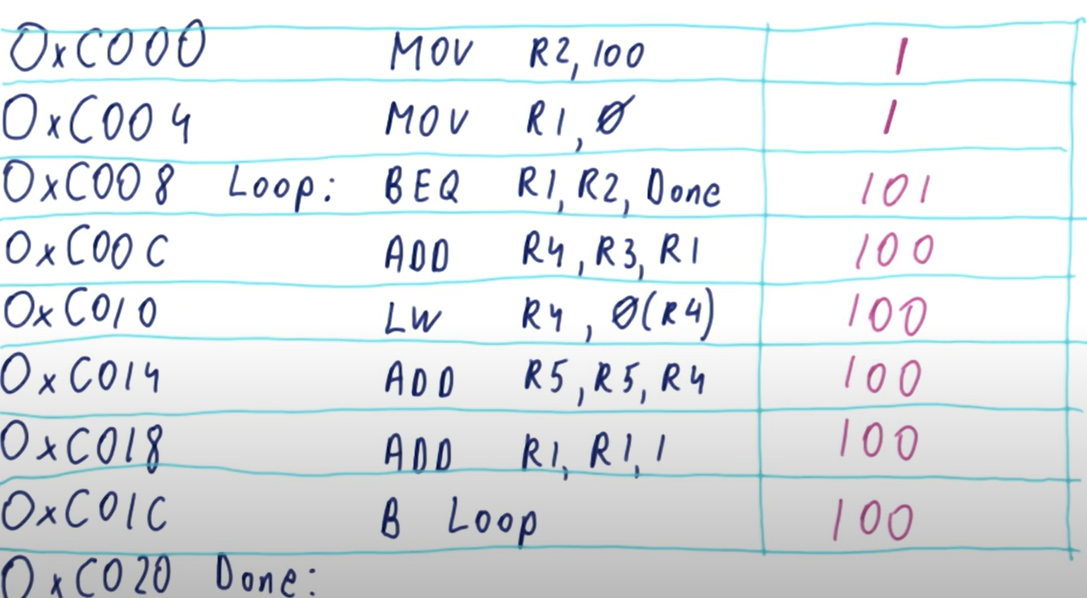 0xC000 MOV R2,100 1
0xC004 MOV R1,0 1
0xC008 Loop: BEQ R1,R2,Done 101
0xC00C ADD R4,R3,R1 100
0xC010 LW R4,0(R4) 100
0xC014 ADD R5,R5,R4 100
0xC018 ADD R1,R1,1 100
0xC01C B Loop 100
0xC020 Done: